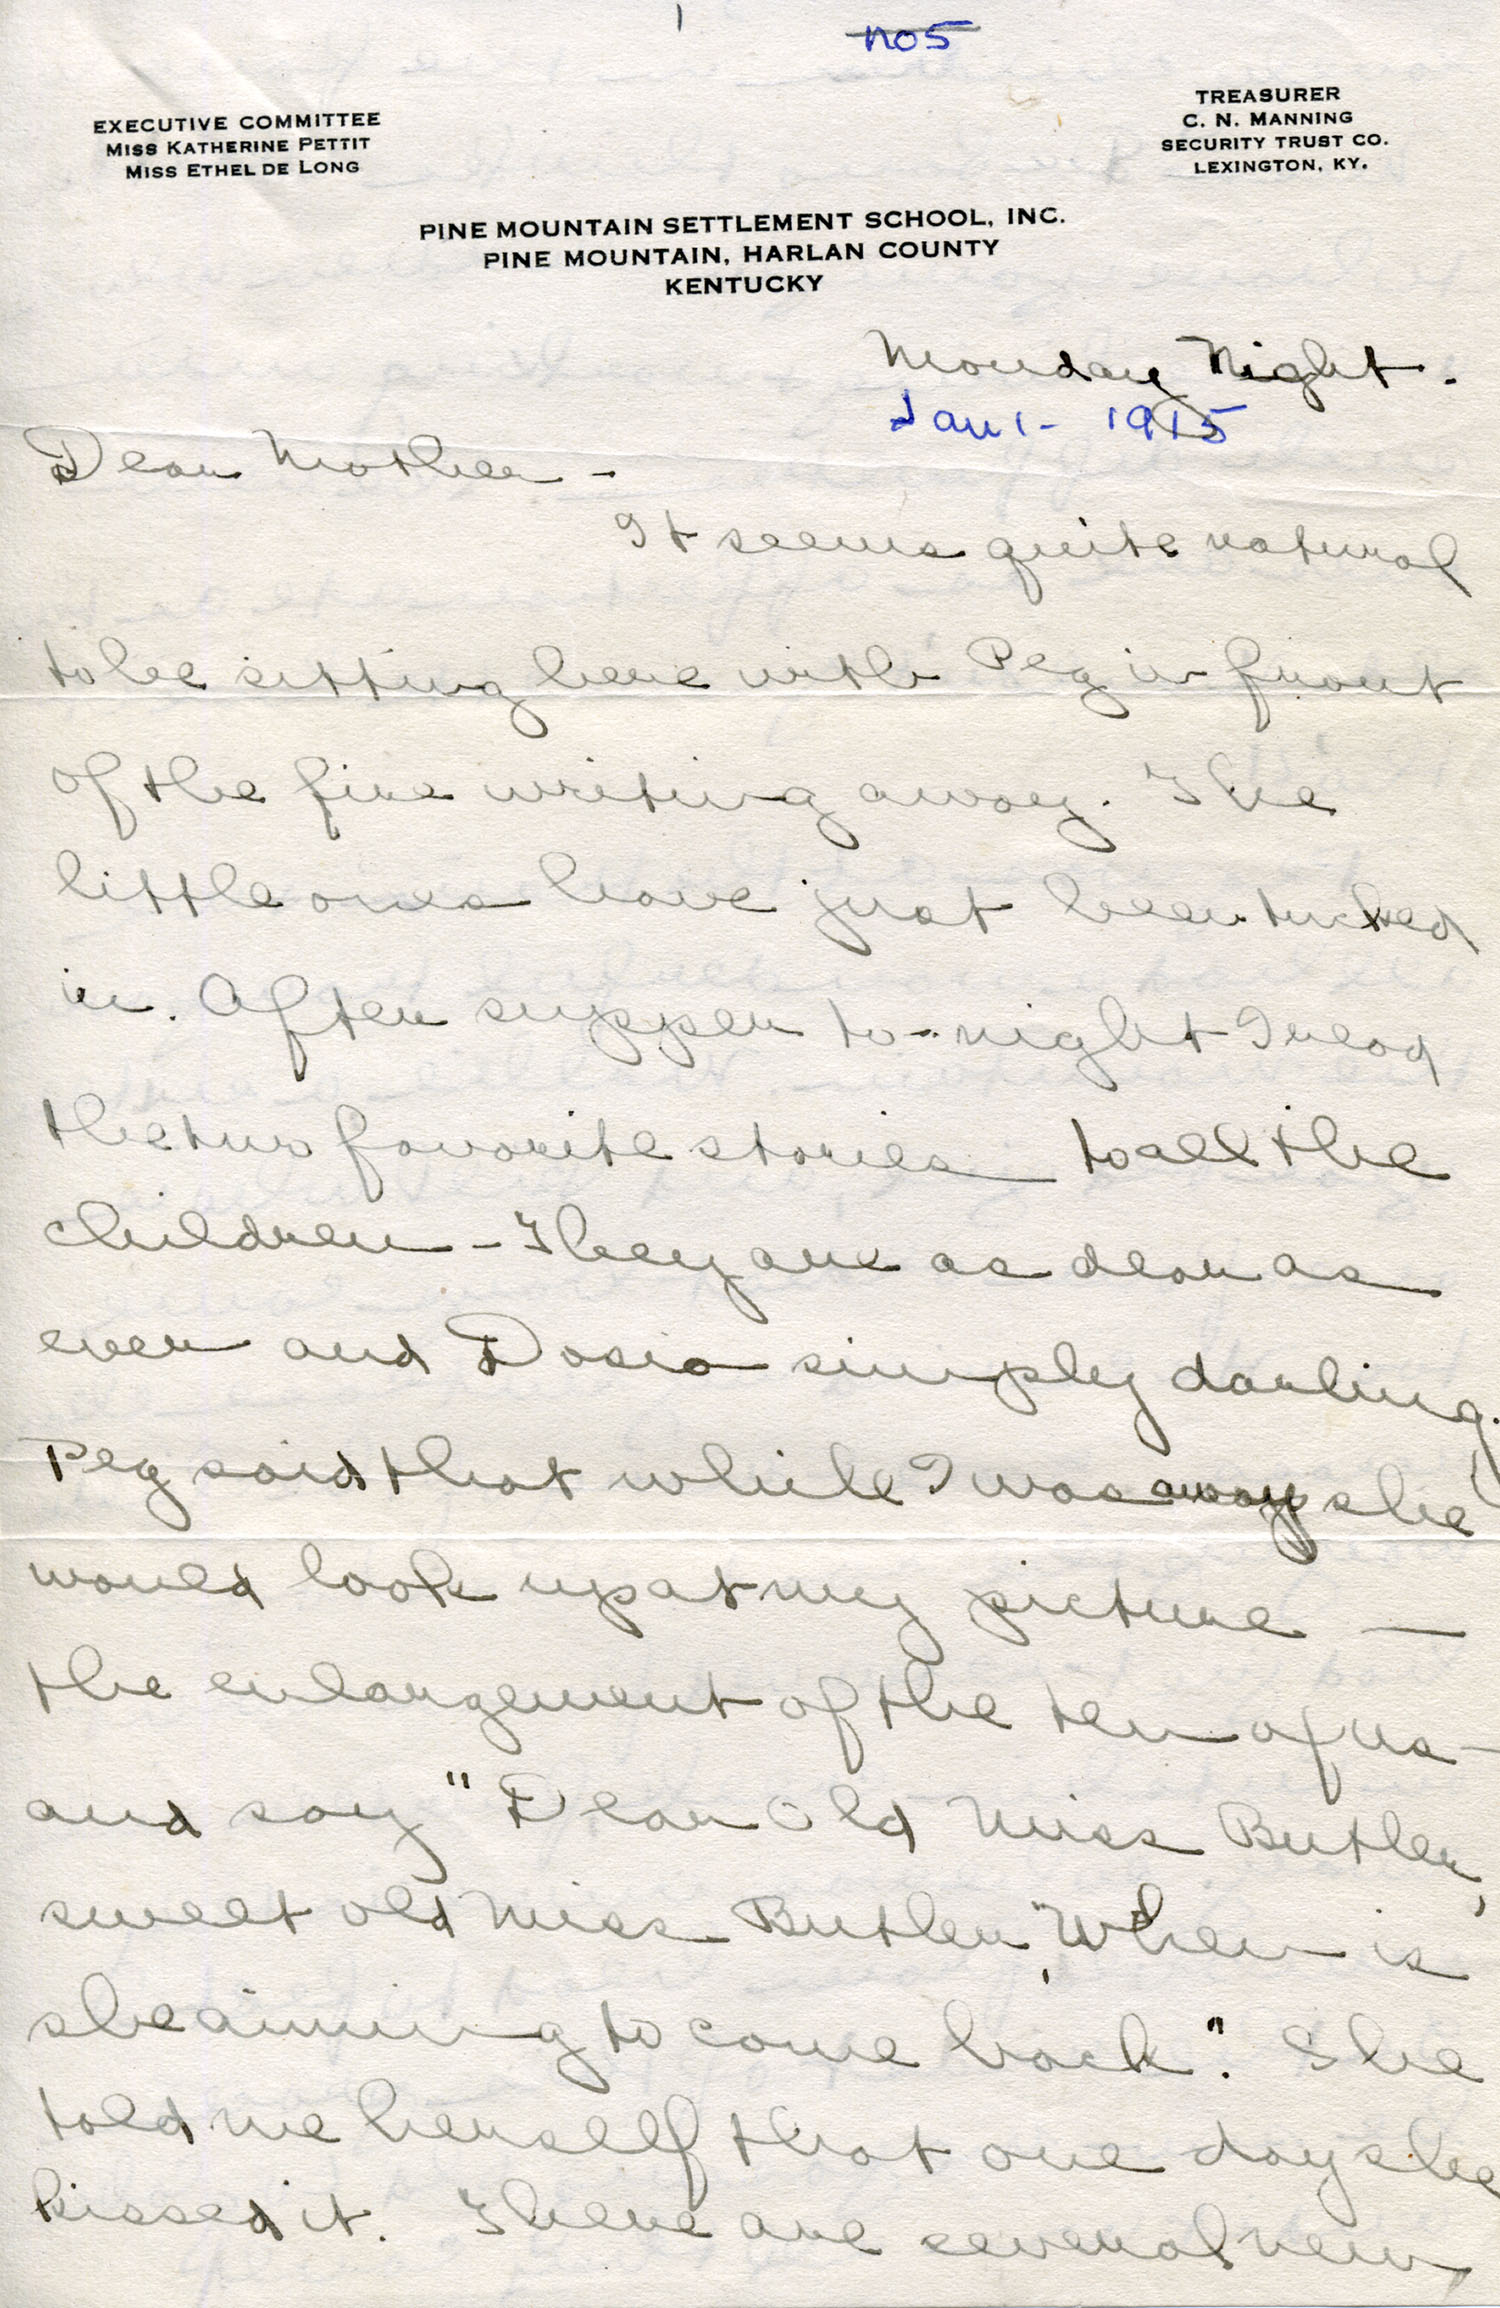 1
no5
EXECUTIVE COMMITTEE
MISS KATHERINE PETTIT
MISS ETHEL DE LONG
TREASURER
C. N. MANNING
SECURITY TRUST CO.
LEXINGTON, KY.
PINE MOUNTAIN SETTLEMENT SCHOOL, INC.
PINE MOUNTAIN, HARLAN COUNTY
KENTUCKY
Monday Night.
Jan 1- 1915
Dear Mother -
It seems quite natural
to be sitting here with Peg in front
of the fire writing away. The
little ones have just been tucked
in. After supper to-night I read
the two favorite stories to all the
children - They are as dear as
ever and Dosia simply darling.
Peg said that while I was away she
would look up at my picture —
the enlargement of the ten of us -
and say "Dear old Miss Butler,
sweet old Miss Butler, "When is
she aiming to come back". She
told me herself that one day she
kissed it. There are several new